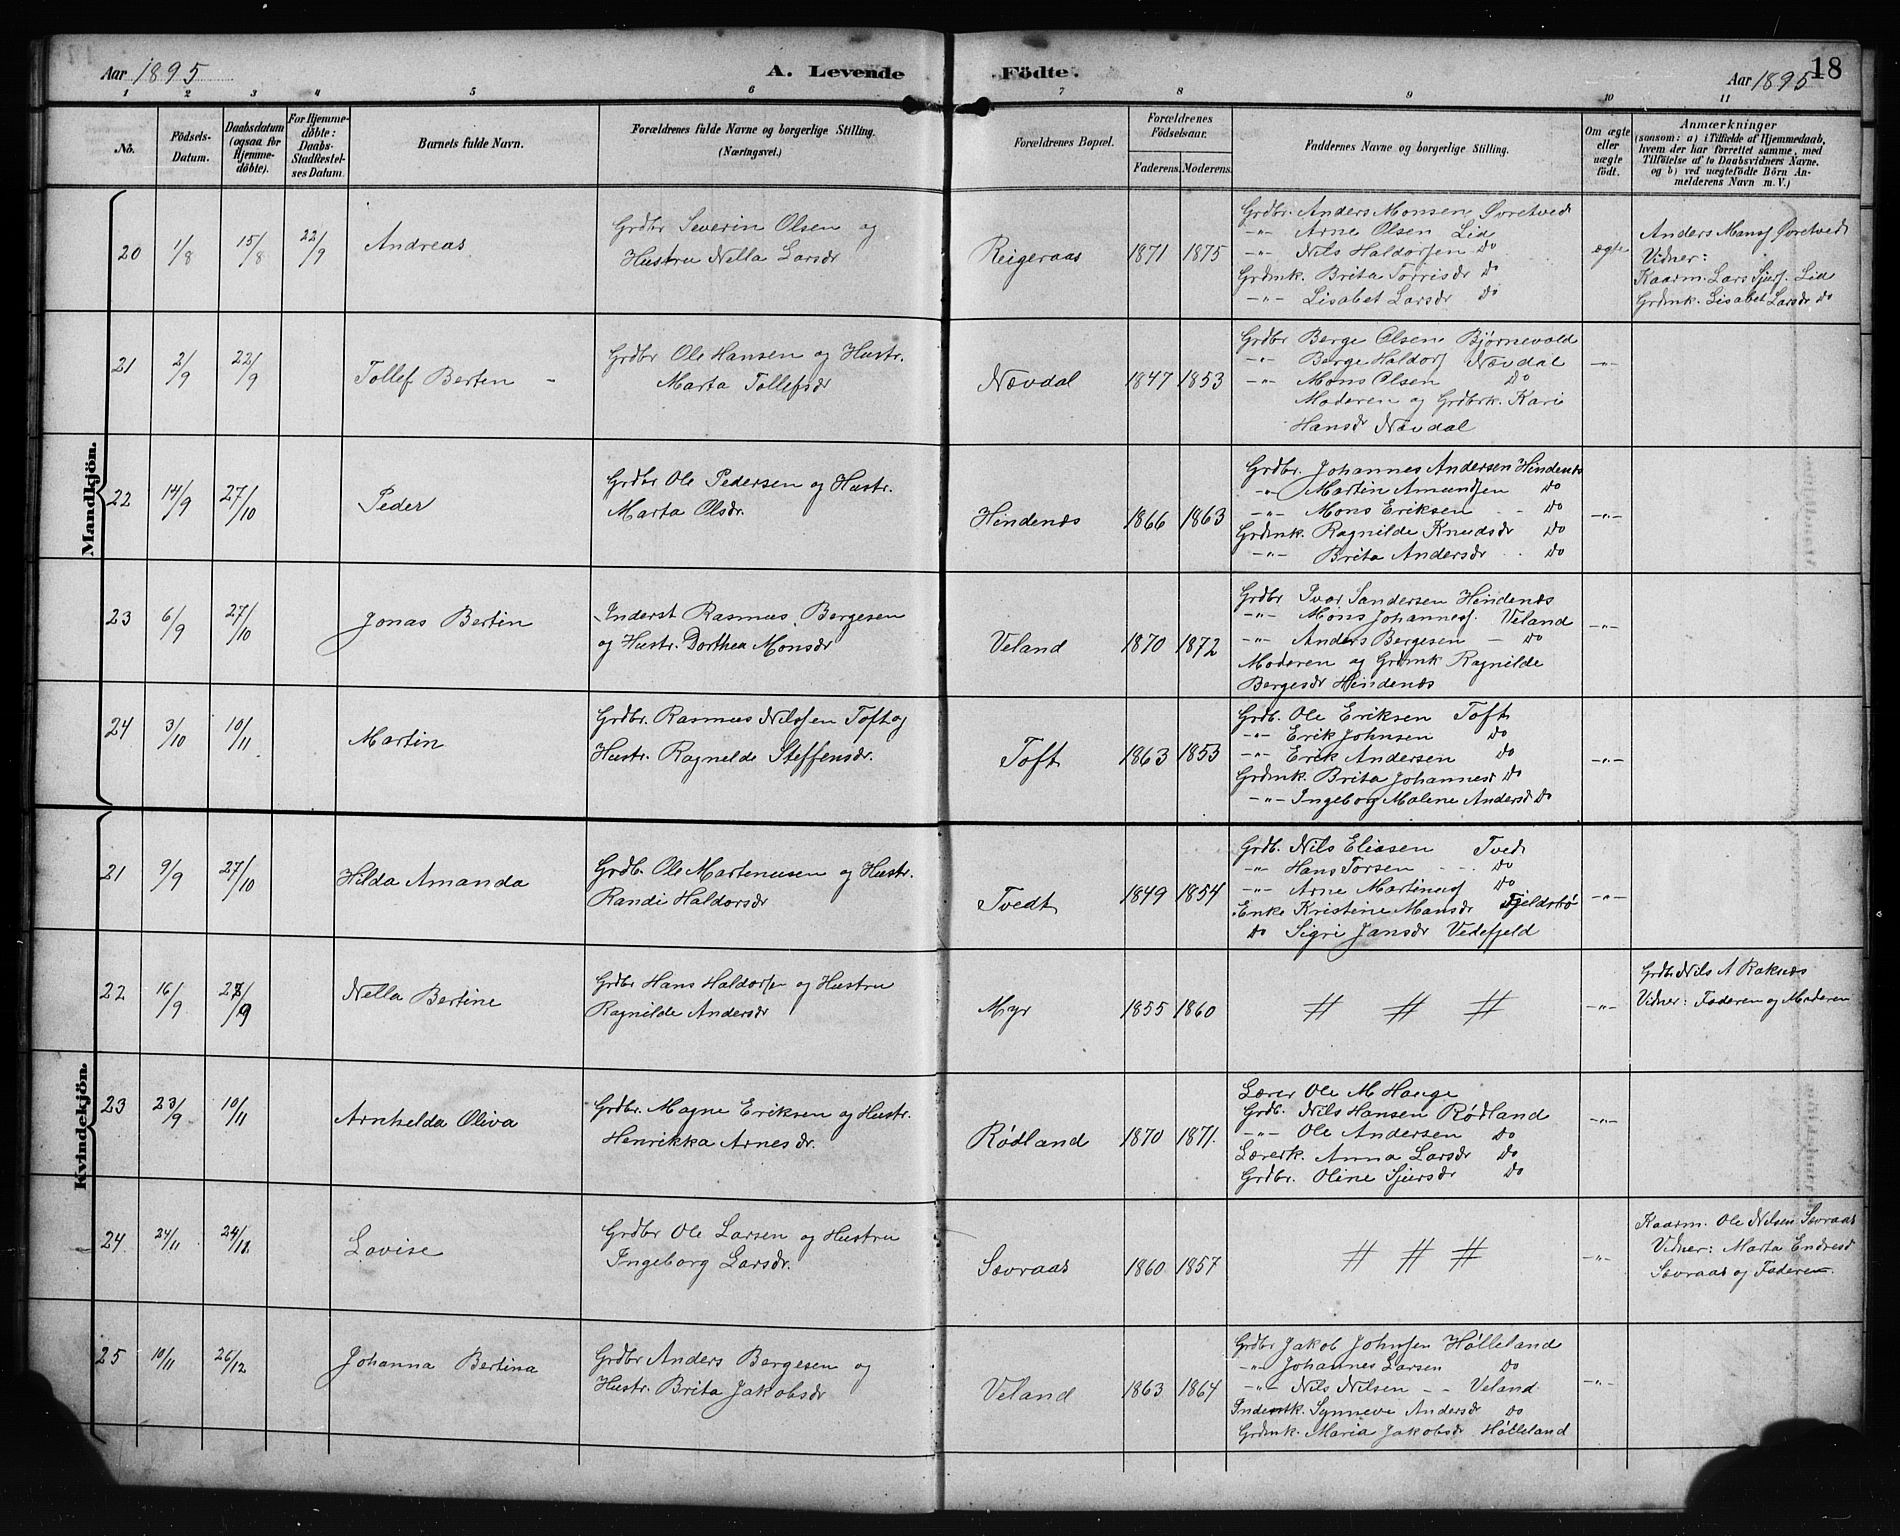 Aar 1895
A. Levende Födte.
Aar 1895
18
1 2 3 4 5 6 7 8 9 10 11
No.
Födsels-Datum.
Daabsdatum (ogsaa for Hjemme-döbte).
For Hjemme-döbte: Daabs-Stadfæstel-ses Datum.
Barnets fulde Navn.
Forældrenes fulde Navne og borgerlige Stilling. (Næringsvei.)
Forældrenes Bopæl.
Forældrenes Födselsaar.
Faderens. Moderens.
Faddernes Navne og borgerlige Stilling.
Om ægte eller uægte födt.
Anmærkninger
(saasom: a) i Tilfælde af Hjemmedaab, hvem der har forrettet samme, med Tilföielse af to Daabsvidners Navne. og b) ved uægtefödte Börn An-melderens Navn m. V.)
Mandkjön.
20 1/8 15/8 22/9 Andreas
Grdbr Severin Olsen og
Hustru Nella Larsdr
Reigeraas 1871 1875
Grdbr. Anders Monsen Øvretvedt
-"- Arne Olsen Lid
-"- Nils Haldorsen Do
Grdmk. Brita Torrisdr Do
-"- Lisabet Larsdr Do
ægte
Anders Mansf Øvretvedt
Vidner:
Kaarm. Lars Sjurs. Lid
Grdmk. Lisabet Larsdr Do
21 2/9 22/9 Tollef Berten -
Grdbr Ole Hansen og Hustr.
Marta Tollefsdr
Nævdal 1847 1853
Grdbr Berge Olsen Bjørnevold
-"- Berge Haldorf Nævdal
-"- Mons Olsen Do
Moderen og Grdbrk. Kari
Hansdr Nævdal
-"-
22 14/9 27/10 Peder
Grdbr Ole Pedersen og Hustr.
Marta Olsdr.
Hindenæs 1866 1863
Grdbr. Johannes Andersen Hindenæs
-"- Martin Amundsen Do
-"- Mons Eriksen - - Do
Grdmk. Ragnilde Knudsdr Do
-"- Brita Andersdr . . Do
-"-
23 6/9 27/10 Jonas Bertin
Inderst Rasmus Bergesen
og Hustr. Dorthea Monsdr
Veland 1870 1872
Grdbr Ivar Sandersen Hindenæs
-"- Mons Johannesf. Veland
-"- Anders Bergesen - Do
Moderen og Grdmk Ragnilde
Bergesdr Hindenæs
-"-
24 3/10 10/11 Martin
Grdbr. Rasmus Nilssen Toft og
Hustr. Ragnelde Steffensdr.
Toft 1863 1853
Grdb. Ole Eriksen Toft
-"- Erik Johnsen Do
-"- Erik Andersen Do
Grdmk. Brita Johannesd Do
-"- Ingeborg Malene Andersd Do
-"-
Kvindekjön.
21 9/9 27/10 Hilda Amanda
Grdb. Ole Martenusen og Hustr.
Randi Haldorsdr
Tvedt 1849 1854
Grdb. Nils Eliasen Tvedt
-"- Hans Torsen - - - Do
-"- Arne Martinusf Do
Enke Kristine Mansdr Fjeldsbø
Do Sigri Jansdr Vedefjeld
-"-
22 16/9 /9 Nella Bertine
Grdbr Hans Haldorsen og Hustru
Ragnilde Andersdr
Myr 1855 1860
# # #
-"-
Grdbr Nils A Raknæs
Vidner: Faderen og Moderen
23 23/9 10/11 Arnhelda Oliva
Grdbr. Magne Eriksen og Hustr.
Henrikka Arnesdr.
Rødland 1870 1871.
Lærer Ole M Hauge
Grdb. Nils Hansen Rødland
-"- Ole Andersen Do
Lærerk. Anna Larsdr Do
Grdbr. Oline Sjursdr Do
-"-
24 24/11 24/11. Lovise
Grdbr Ole Larsen og Hustru
Ingeborg Larsdr.
Sævraas 1860 1857
# # #
-"-
Kaarm. Ole Nilsen Sævraas
Vidner: Marta Endresd
Sævraas og Faderen.
25 10/11 26/12 Johanna Bertina
Grdbr Anders Bergesen og
Hustr. Brita Jakobsdr
Veland 1863 1864
Grdbr Jakob Johnsen Hølleland
-"- Johannes Larsen Do
-"- Nils Nilsen - - Veland
Inderstk. Synneve Andersdr Do
Grdmk. Maria Jakobsdr Hølleland
-"-